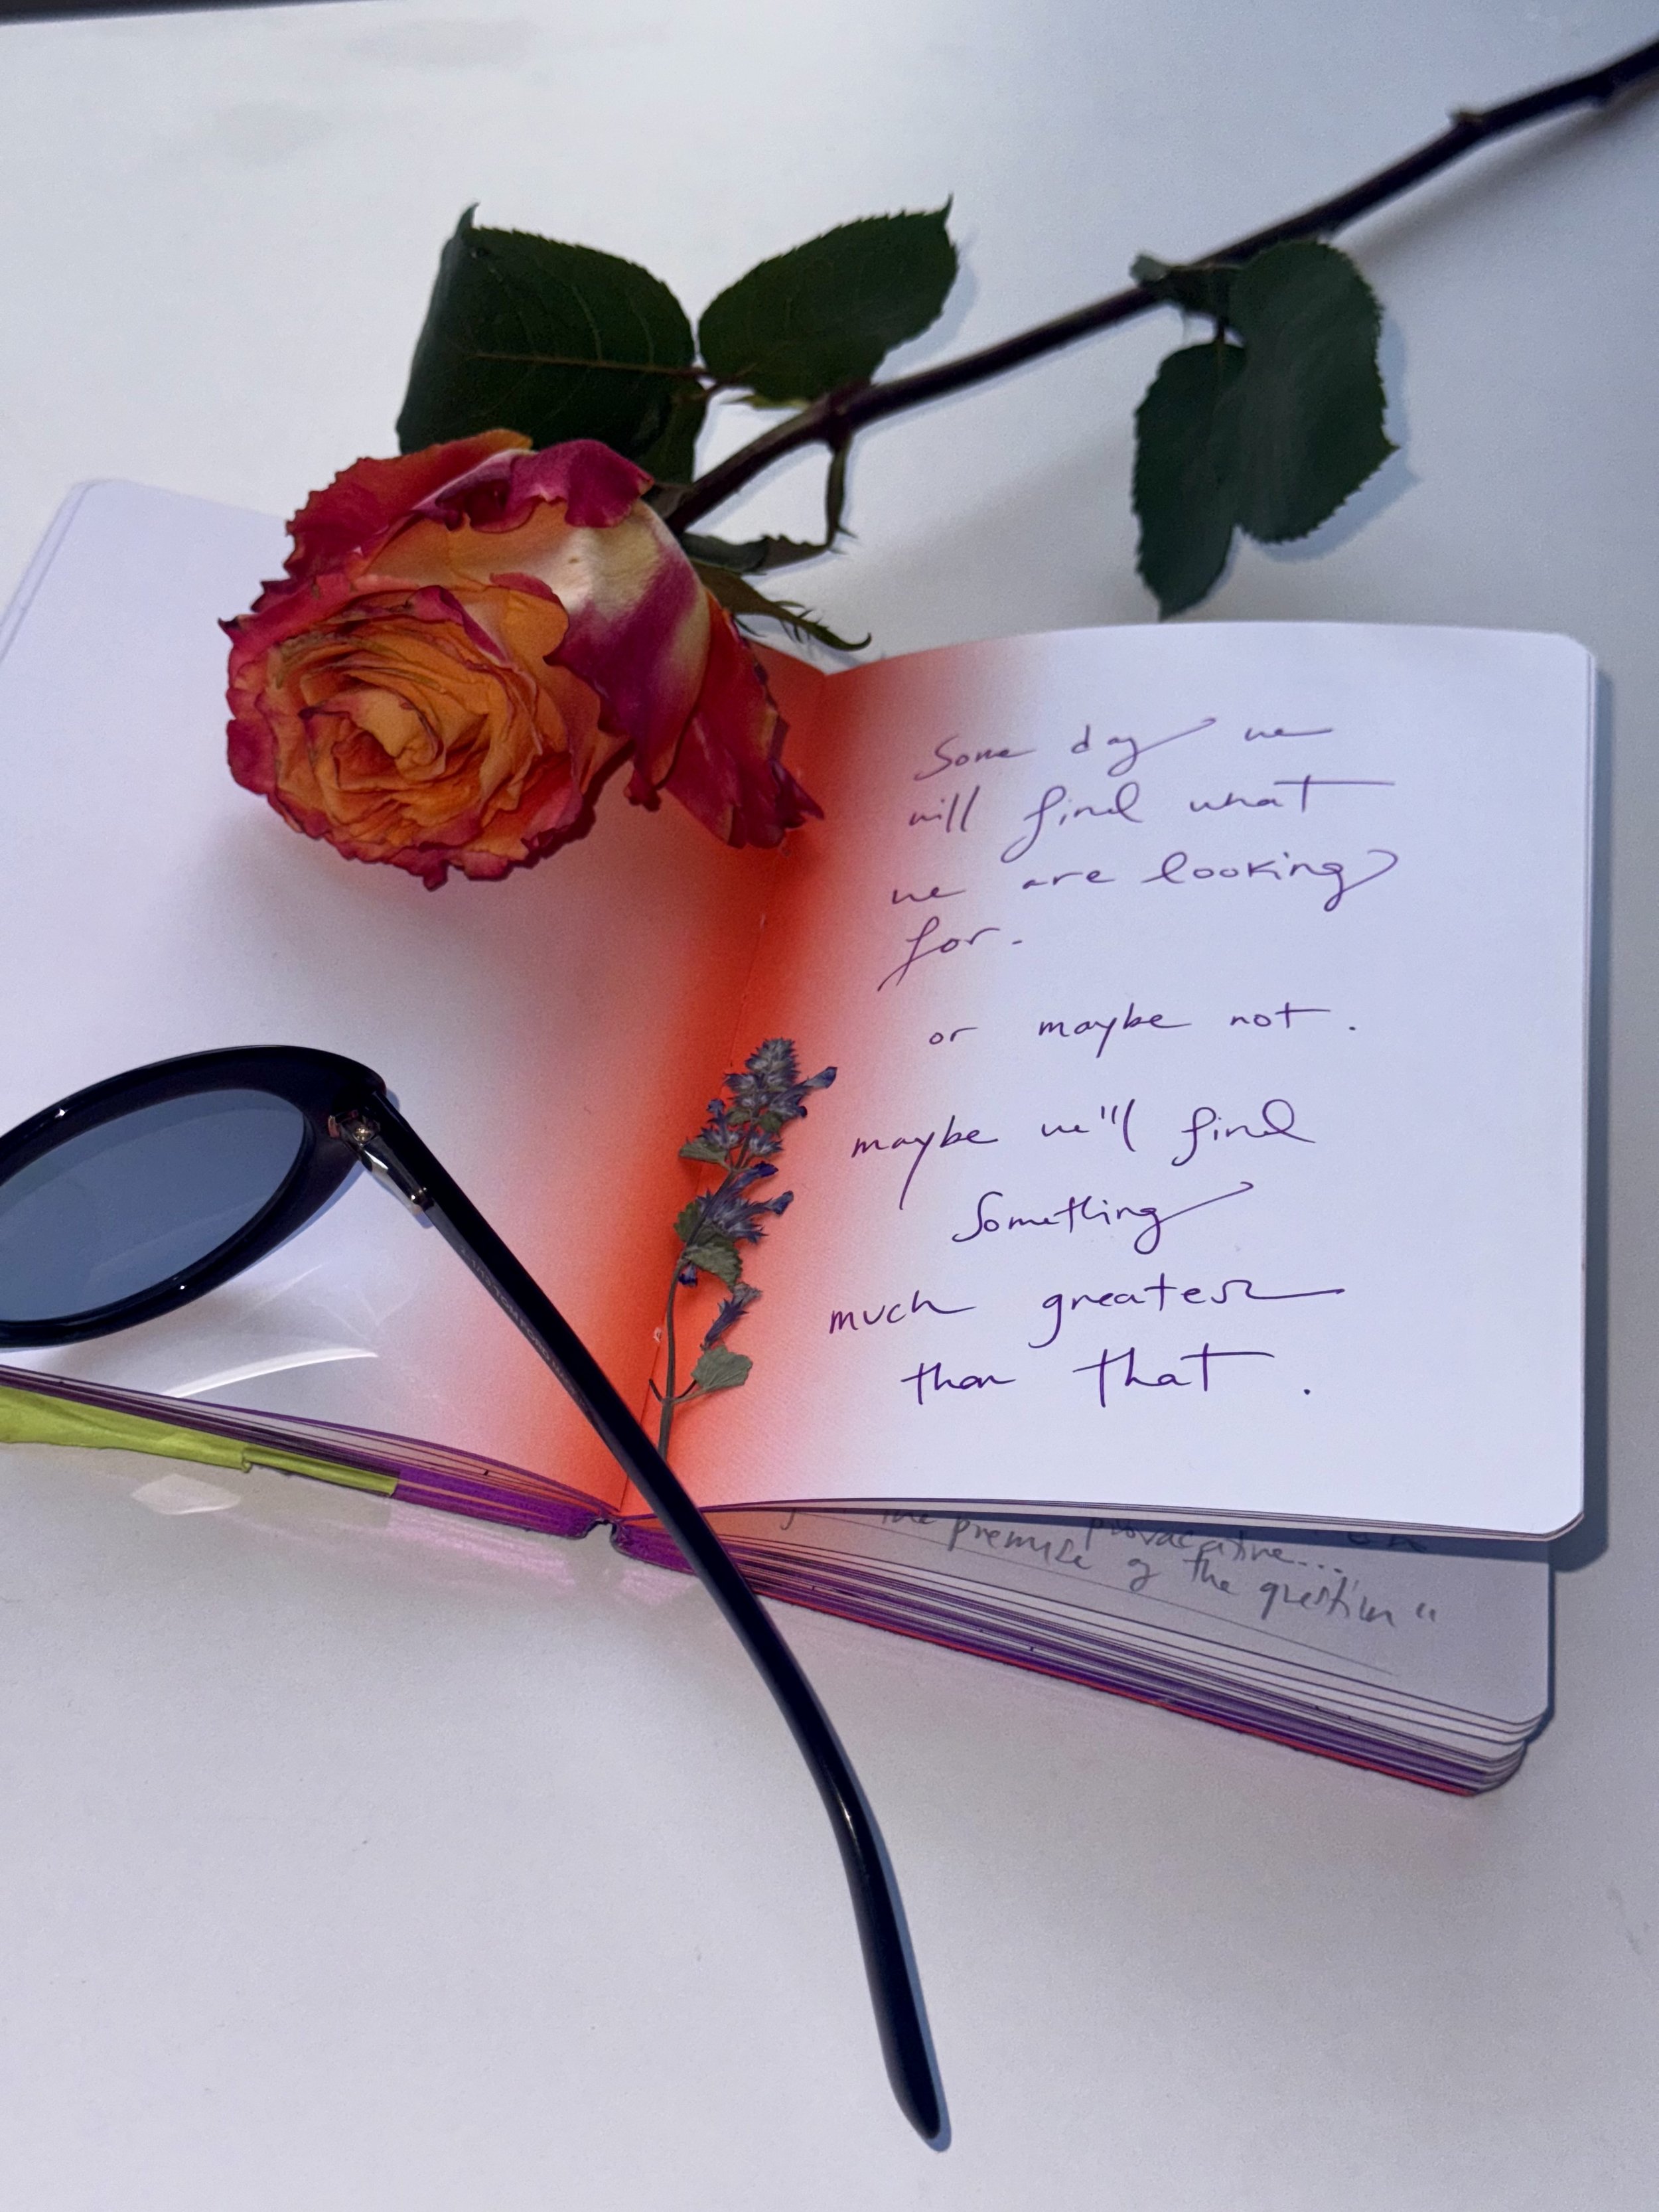 Some day we
will find what
we are looking
for.
or maybe not.
maybe we"ll find
Something
much greater
than that.
the premise provacative...
of the question"